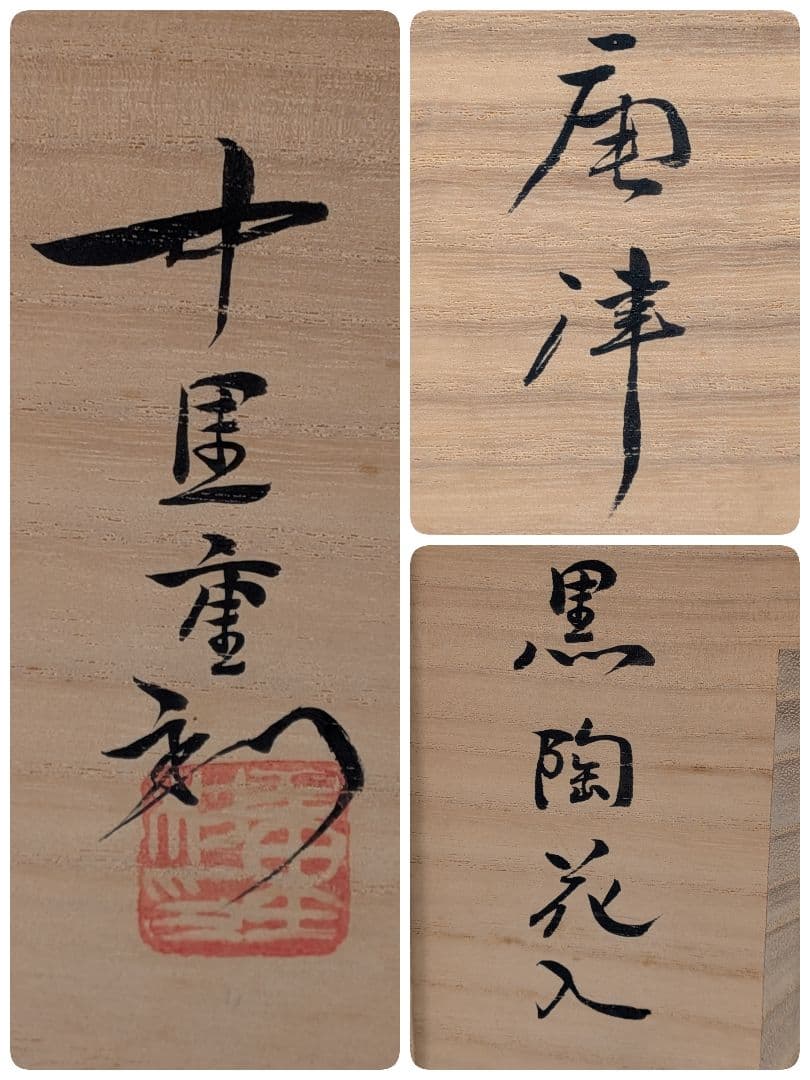 唐津
黒陶花入
中里重利